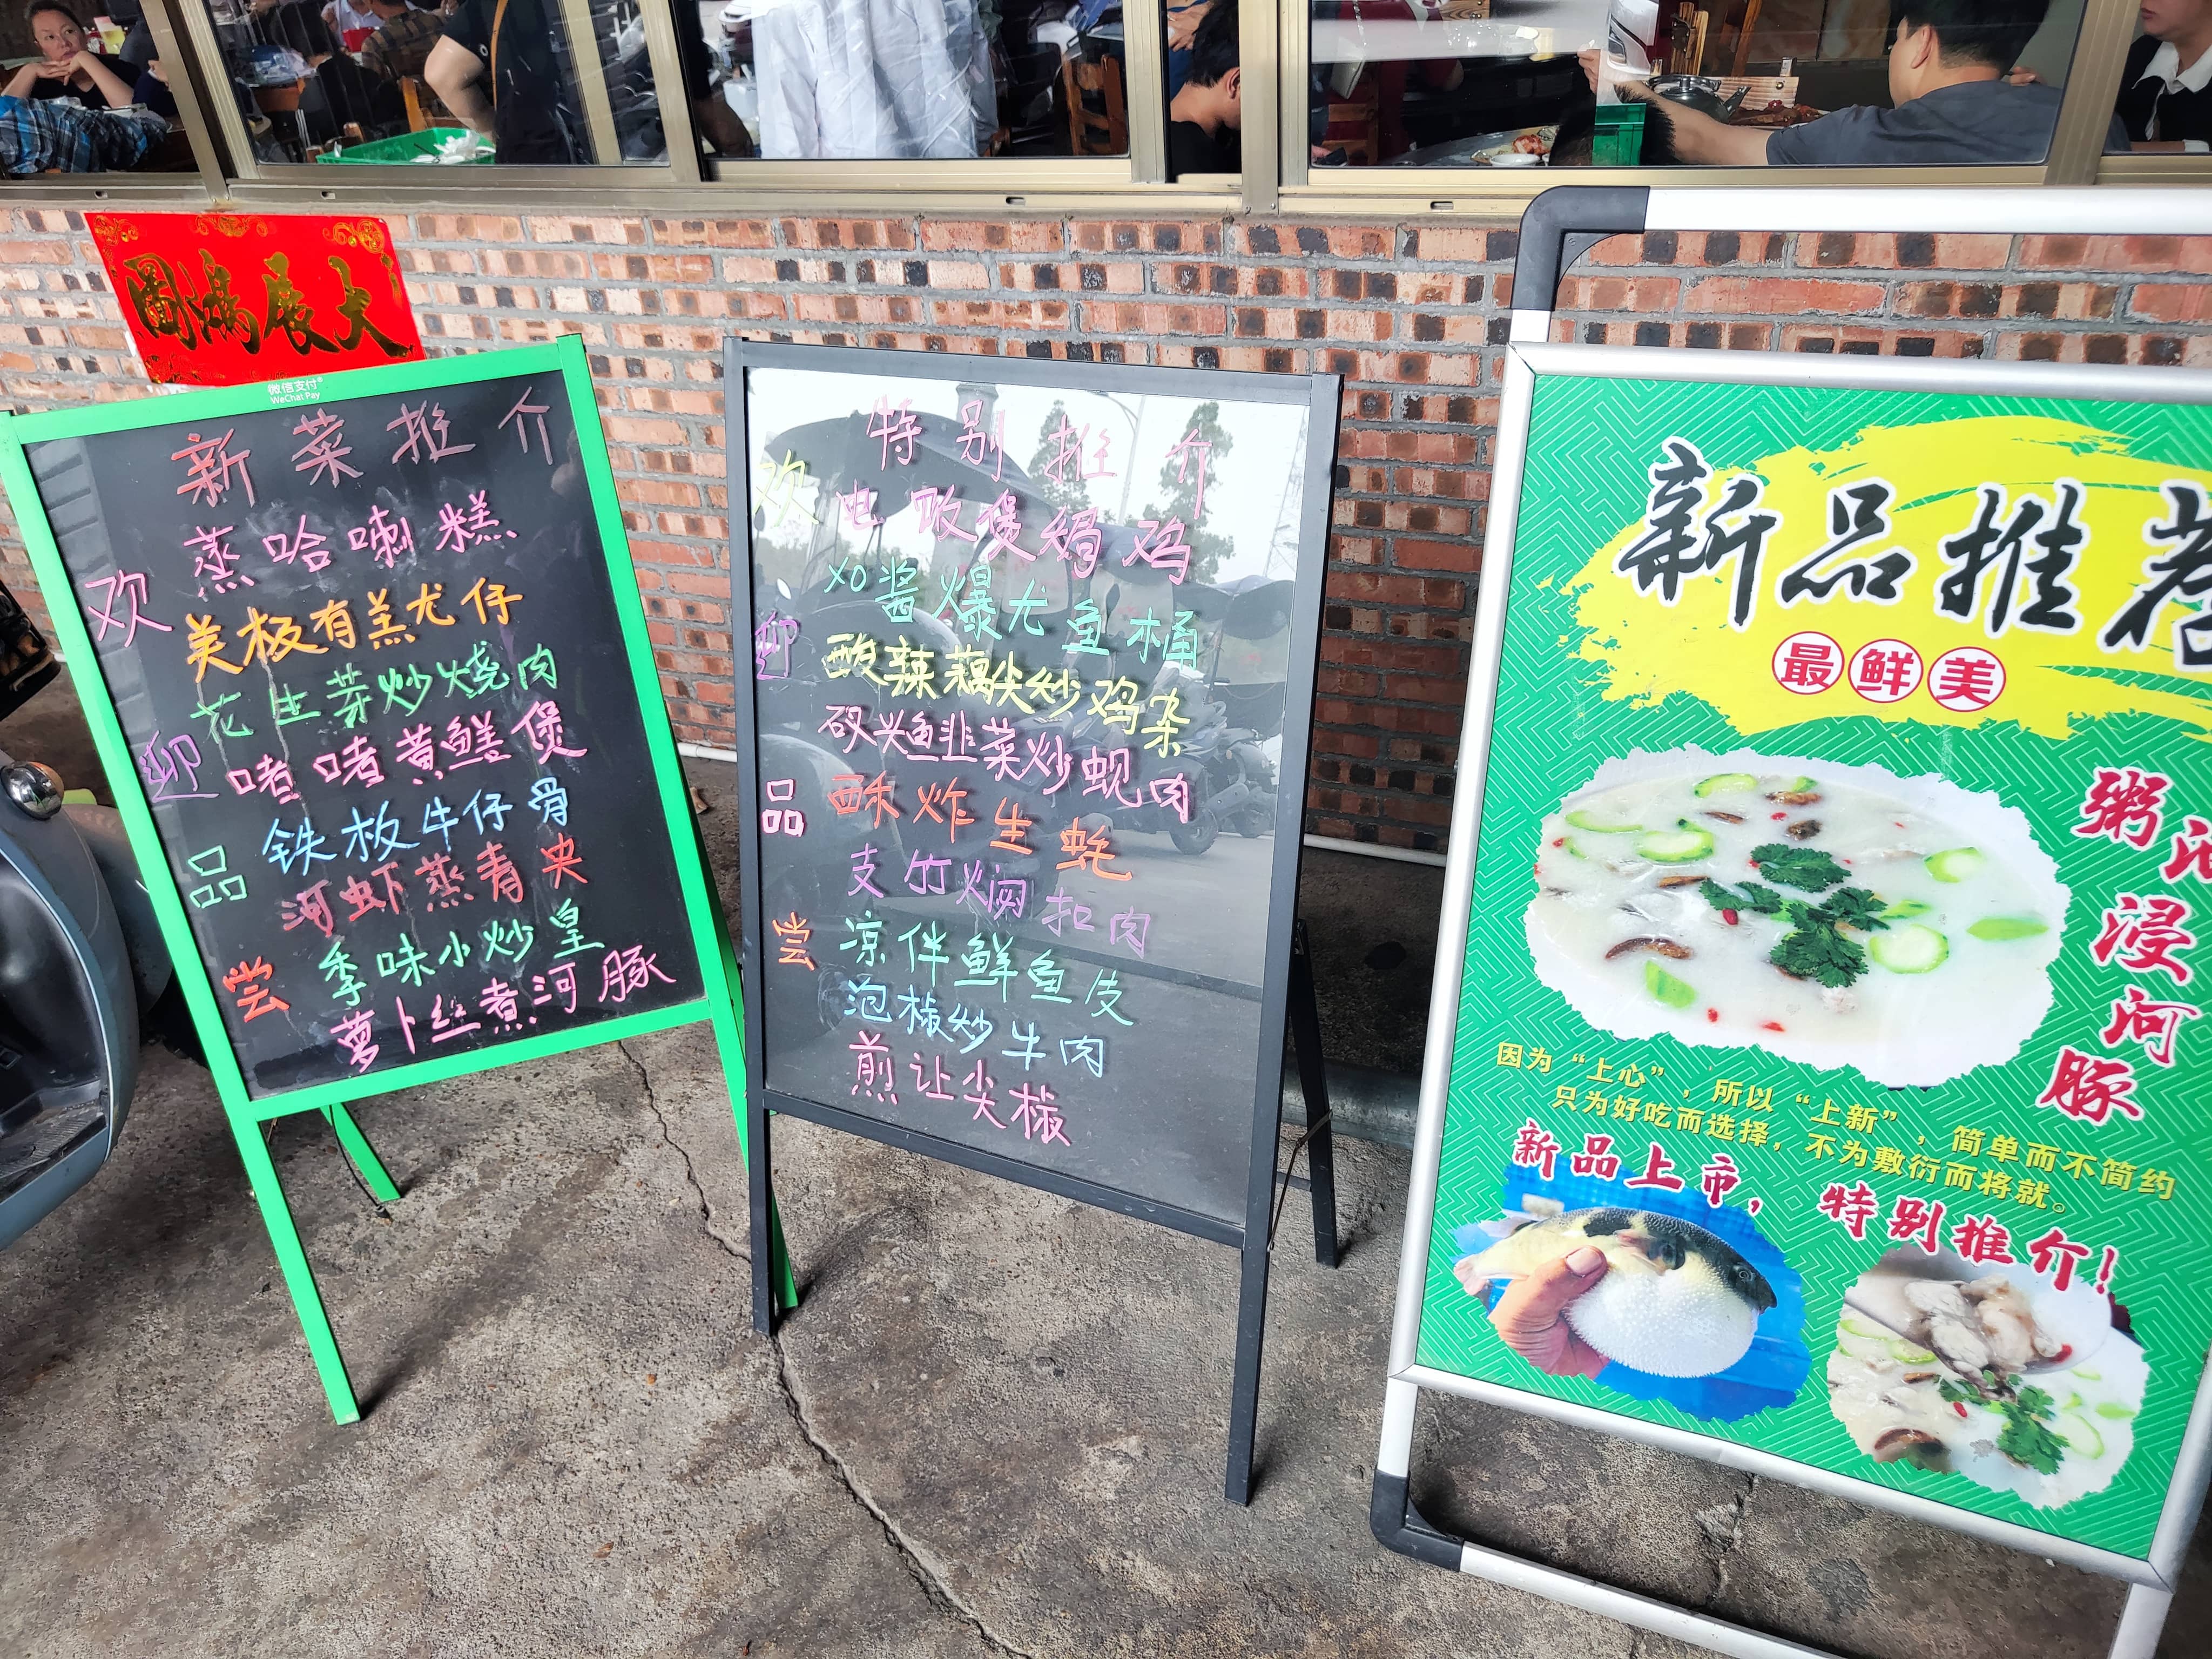 大展鴻圖
微信支付
WeChat Pay
新菜推介
蒸哈喇糕
美极有羔尤仔
花生芽炒烧肉
啫啫黄鳝煲
铁板牛仔骨
河虾蒸青央
季味小炒皇
萝卜丝煮河豚
欢迎品尝
特别推介
电饭煲焗鸡
XO酱爆尤鱼桶
酸辣藕尖炒鸡杂
韭菜炒蚬肉
酥炸生蚝
支竹焖扣肉
凉伴鲜鱼皮
泡椒炒牛肉
煎让尖椒
欢迎品尝
新品推荐
最鲜美
粥油浸河豚
因为“上心”，所以“上新”，简单而不简约
只为好吃而选择，不为敷衍而将就。
新品上市，特别推介！